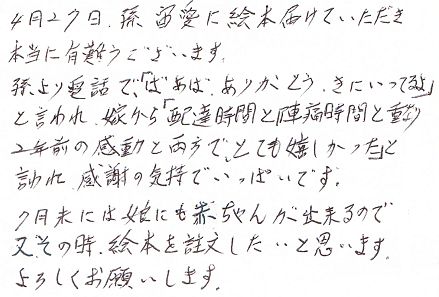 4月27日、孫 宙愛に絵本届けていただき
本当に有難うございます。
孫より電話で、「ばあば、ありがとう、きにいってるよ」
と言われ、嫁から「配達時間と陣痛時間と重なり
2年前の感動と両方で、とても嬉しかった」と
言われ、感謝の気持でいっぱいです。
7月末には娘にも赤ちゃんが出来るので
又、その時、絵本を註文したいと思います。
よろしくお願いします。